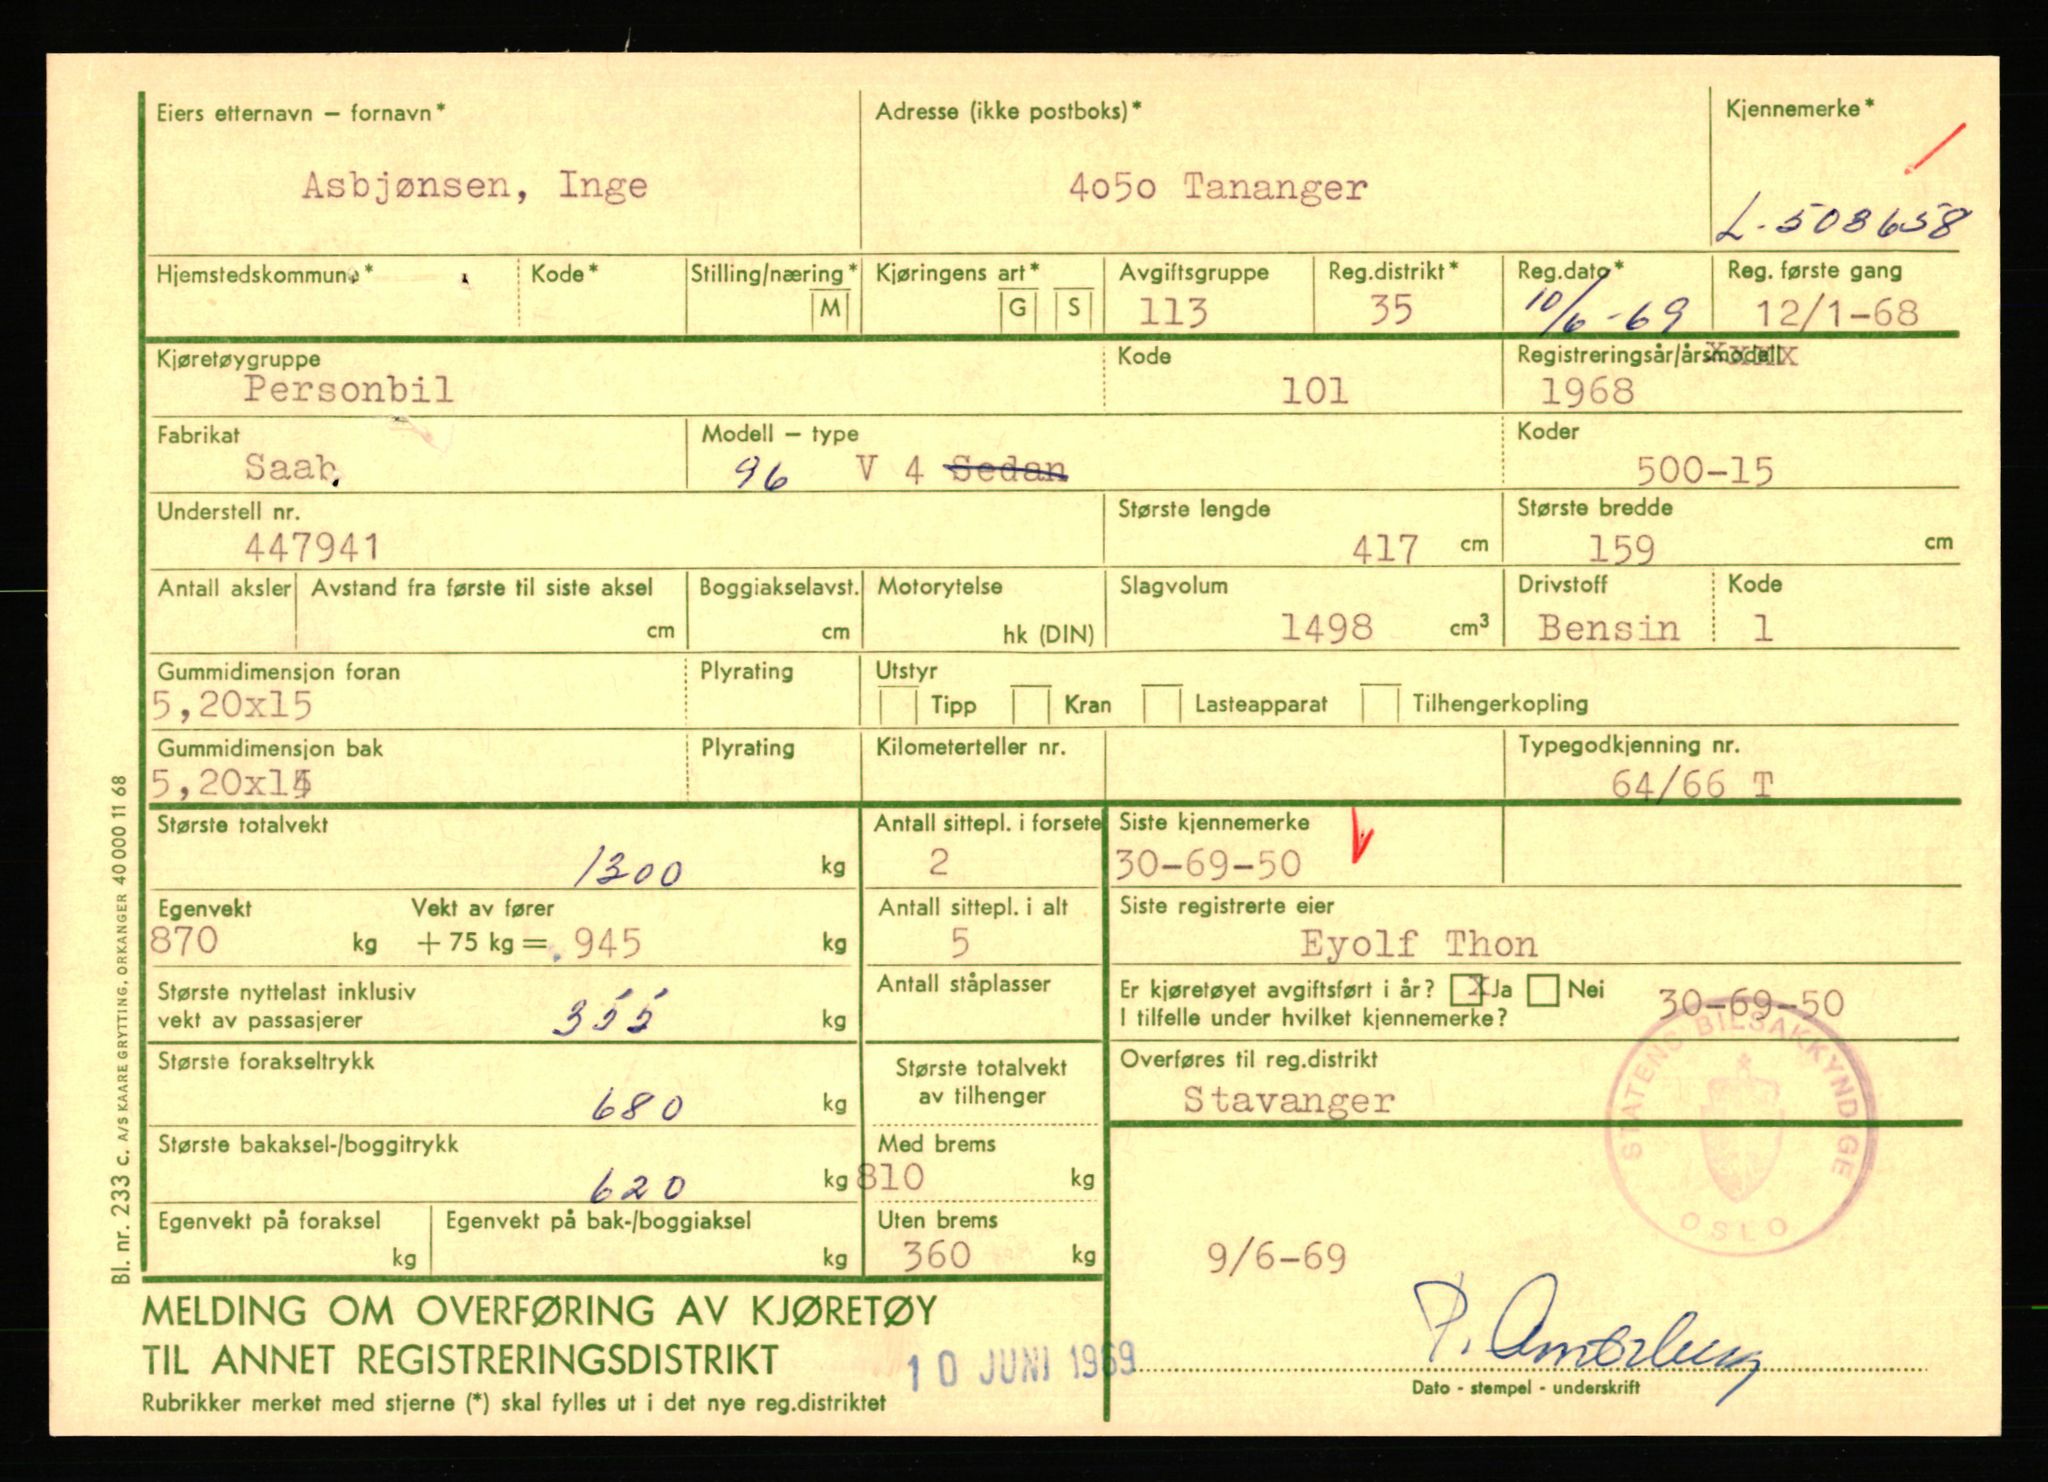 Eiers etternavn – fornavn* Adresse (ikke postboks)* Kjennemerke*
Asbjønsen, Inge 4o5o Tananger
L-508658
Hjemstedskommune* Kode* Stilling/næring* Kjøringens art* Avgiftsgruppe Reg.distrikt* Reg.dato* Reg. første gang
M G S 113 35 10/6-69 12/1-68
Kjøretøygruppe Kode Registreringsår/årsmodell
Personbil 101 1968
Fabrikat Modell – type Koder
Saab. 96 V 4 Sedan 500-15
Understell nr. Største lengde Største bredde
447941 417 cm 159 cm
Antall aksler Avstand fra første til siste aksel Boggiakselavst. Motorytelse Slagvolum Drivstoff Kode
cm cm hk (DIN) 1498 cm³ Bensin 1
Gummidimensjon foran Plyrating Utstyr
5,20x15 Tipp Kran Lasteapparat Tilhengerkopling
Gummidimensjon bak Plyrating Kilometerteller nr. Typegodkjenning nr.
5,20x15 64/66 T
Største totalvekt Antall sittepl. i forsete Siste kjennemerke
1300 kg 2 30-69-50
Egenvekt Vekt av fører Antall sittepl. i alt Siste registrerte eier
870 kg + 75 kg = 945 kg 5 Eyolf Thon
Største nyttelast inklusiv Antall ståplasser Er kjøretøyet avgiftsført i år? X Ja Nei 30-69-50
vekt av passasjerer 355 kg I tilfelle under hvilket kjennemerke?
Største forakseltrykk Største totalvekt Overføres til reg.distrikt
680 kg av tilhenger Stavanger
Største bakaksel-/boggitrykk Med brems
620 kg 810 kg
Egenvekt på foraksel Egenvekt på bak-/boggiaksel Uten brems
kg kg 360 kg 9/6-69
STATENS BILSAKKYNDIGE
OSLO
MELDING OM OVERFØRING AV KJØRETØY
TIL ANNET REGISTRERINGSDISTRIKT 10 JUNI 1969
Dato - stempel - underskrift
Rubrikker merket med stjerne (*) skal fylles ut i det nye reg.distriktet
Bl. nr. 233 c. A/S KAARE GRYTTING, ORKANGER 40 000 11 68